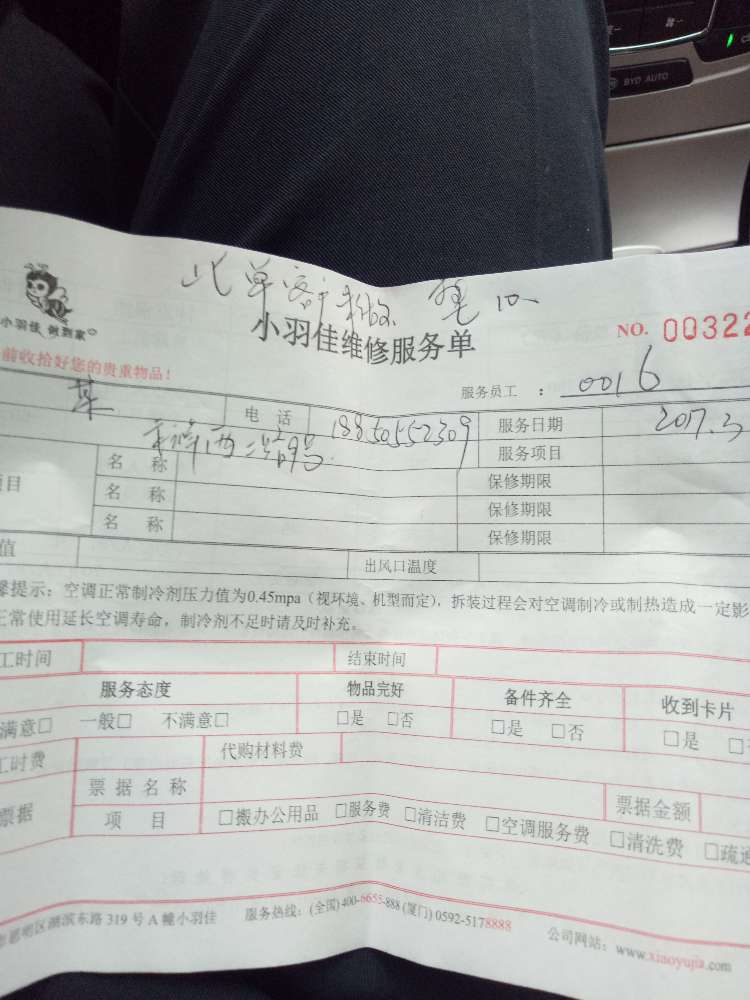 BYD AUTO
此单客户
小羽佳 做到家
小羽佳维修服务单
NO. 00322
前收拾好您的贵重物品！
服务员工 ： 0016
某 电 话 18850552309 服务日期 2017.3
西 服务项目
项目 名 称 保修期限
名 称 保修期限
名 称 保修期限
值 出风口温度
馨提示：空调正常制冷剂压力值为0.45mpa（视环境、机型而定），拆装过程会对空调制冷或制热造成一定影
正常使用延长空调寿命，制冷剂不足时请及时补充。
工时间 结束时间
服务态度 物品完好 备件齐全 收到卡片
满意□ 一般□ 不满意□ □是 □否 □是 □否 □是 □
工时费 代购材料费
票据 票 据 名 称 票据金额
项 目 □搬办公用品 □服务费 □清洁费 □空调服务费 □清洗费 □疏通
思明区湖滨东路 319 号 A 幢小羽佳 服务热线：(全国) 400-6655-888 (厦门) 0592-5178888 公司网站：www.xiaoyujia.com